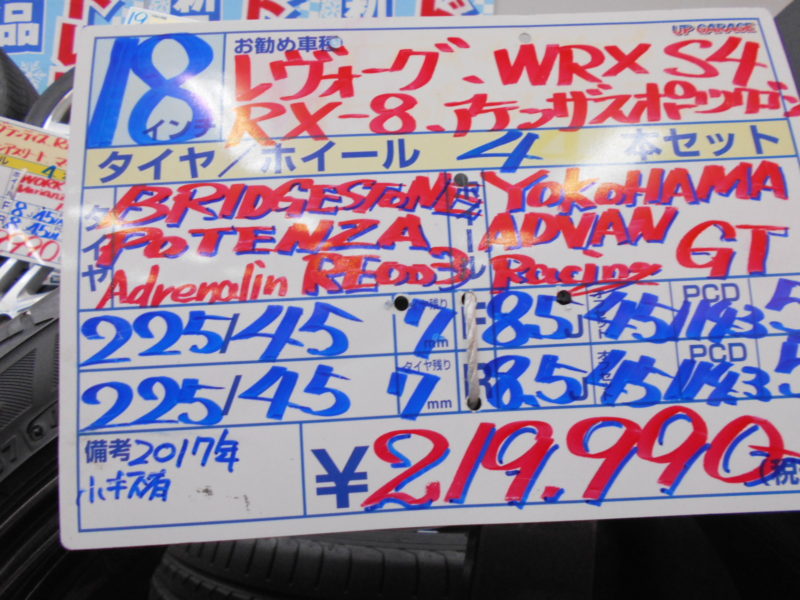 UP GARAGE
18 インチ
お勧め車種
レヴォーグ、WRX S4
RX-8、アテンザスポーツワゴン
タイヤ/ホイール 4 本セット
タイヤ
BRIDGESTONE
POTENZA
Adrenalin RE003
ホイール
YOKOHAMA
ADVAN
Racing GT
225/45 タイヤ残り 7mm F 8.5J オフセット 45 PCD 114.3 5
225/45 タイヤ残り 7mm R 8.5J オフセット 45 PCD 114.3 5
備考 2017年
小キズ有
¥219.990 (税
WORK